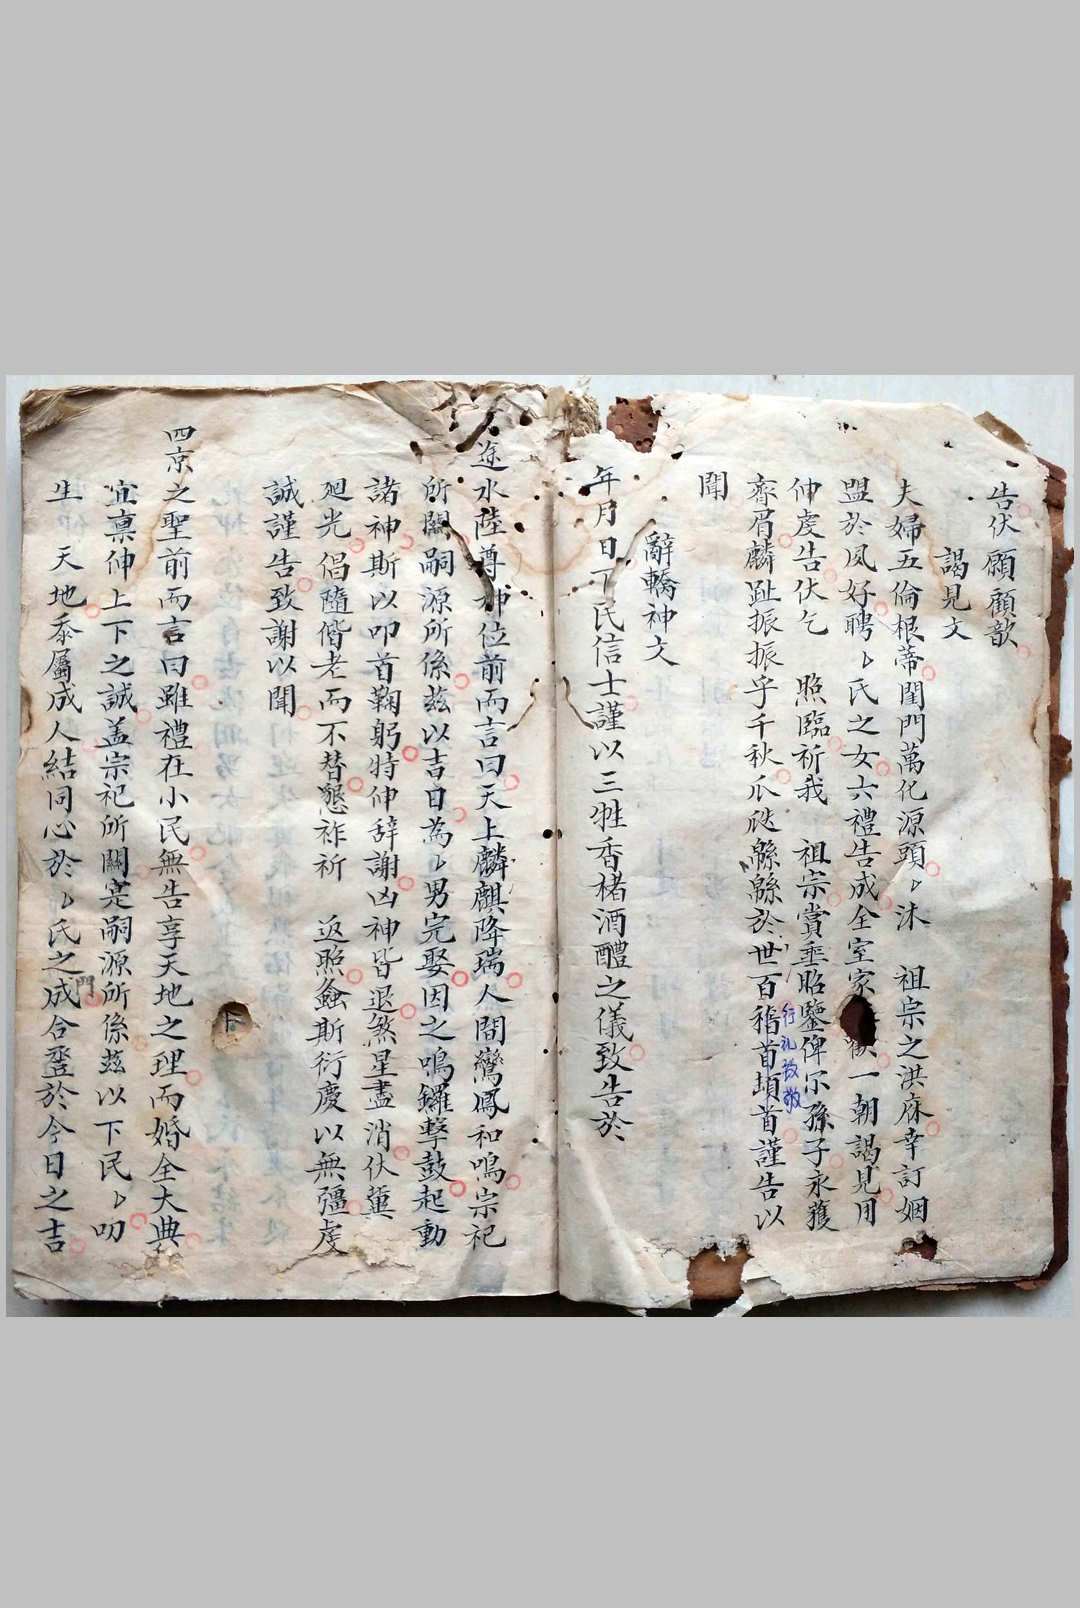 告伏願顧歆
謁見文
夫婦五倫根蒂閨門萬化源頭ㄣ沐 祖宗之洪庥幸訂姻
盟於夙好聘ㄣ氏之女六禮告成全室家一朝謁見用
伸虔告伏乞 照臨祈我 祖宗賞垂昭鑒俾尔孫子永獲
齊眉麟趾振振乎千秋瓜瓞緜緜於世百稽首頓首謹告以
行礼致敬
聞
辭轎神文
年月日下民信士謹以三牲香楮酒醴之儀致告於
途水陸尊神位前而言曰天上麟麒降瑞人間鸞鳳和鳴宗祀
所關嗣源所係茲以吉日為ㄣ男完娶因之鳴鑼擊鼓起動
諸神斯以叩首鞠躬特伸辞謝凶神皆退煞星盡消伏冀
廻光倡隨偕老而不替懇祚祈 返照螽斯衍慶以無彊虔
誠謹告致謝以聞
四京之聖前而言曰雖禮在小民無告享天地之理而婚全大典
宜稟伸上下之誠盖宗祀所關寔嗣源所係茲以下民ㄣ叨
生 天地忝屬成人結同心於ㄣ氏之門成合卺於今日之吉